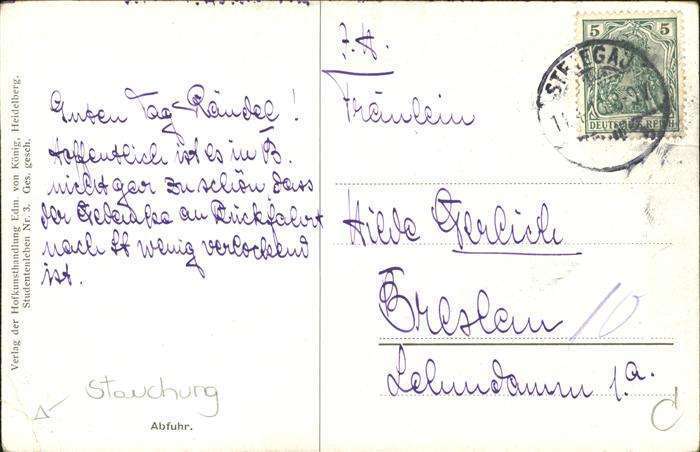 Verlag der Hofkunsthandlung Edm. von König, Heidelberg.
Studentenleben Nr. 3. Ges. gesch.
Guten Tag Rändel!
Hoffentlich ist es in B.
nicht gar zu schön dass
der Gedanke an Rückfahrt
nach St wenig verlockend
ist.
Stauchung
Abfuhr.
Fräulein
Hilde Gerlich
Breslau 10
Lehmdamm 1.a.
5 5
DEUTSCHES REICH
STRIEGAU